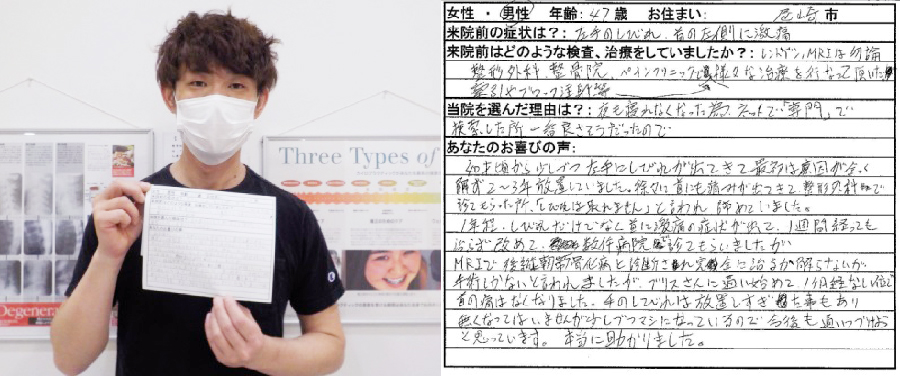 Three Types of
Degenera
女性 ・ 男性 年齢:47歳 お住まい: 尼崎 市
来院前の症状は?: 左手のしびれ、首の左側に激痛
来院前はどのような検査、治療をしていましたか?: レントゲン、MRIは勿論
整形外科、整骨院、ペインクリニックと様々な治療を行なって頂いた
牽引やブロック注射等
当院を選んだ理由は?: 夜も寝れなくなった為、ネットで「専門」で
検索した所一番良さそうだったので
あなたのお喜びの声:
40才頃から少しづつ左手にしびれが出てきて最初は原因が全く
解らず2〜3年放置していました。徐々に首にも痛みが出てきて整形外科で
診てもらった所、「しびれは取れません」と言われ諦めていました。
1年程、しびれだけでなく首に激痛の症状が出て、1週間経っても
治らず改めて、数件病院で診てもらいましたが
MRIで後縦靭帯骨化病と診断され完全に治るか解らないが
手術しかないと言われましたが、プリスさんに通い始めて、1ヵ月経たない位で
首の痛はなくなりました。手のしびれは放置しすぎた事もあり
無くなってはいませんが少しづつマシになっているので今後も通いつづけよう
と思っています。本当に助かりました。